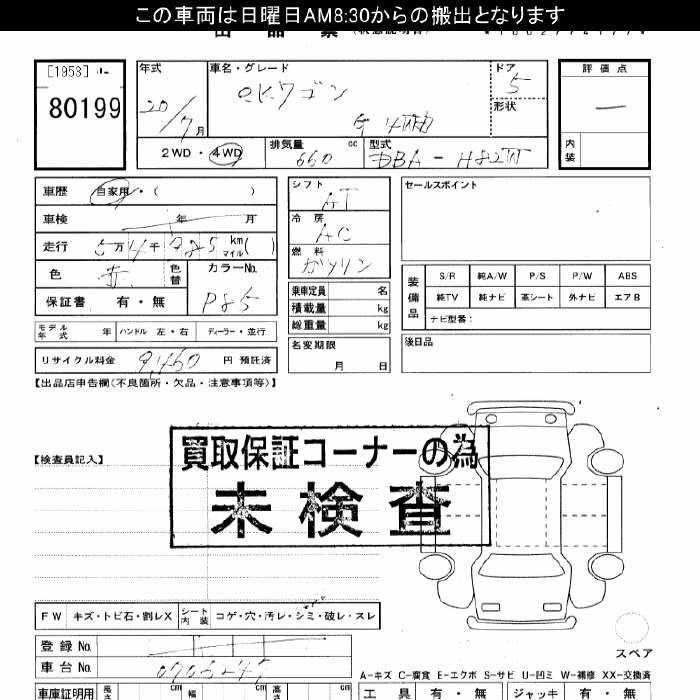 この車両は日曜日AM8:30からの搬出となります
[1953]
80199
年式
20/7月
車名・グレード
eKワゴン
G 4WD
ドア
5
形状
評価点
内装
2WD・4WD
排気量
660 cc
型式
DBA-H82W
車歴 自家用・( )
車検 年 月
走行 5万4千985 km マイル( )
色 赤 色替
カラーNo.
P85
保証書 有・無
モデル年式 年 ハンドル 左・右 ディーラー・並行
リサイクル料金 9,460 円 預託済
シフト
AT
冷房
AC
燃料
ガソリン
乗車定員 名
積載量 kg
総重量 kg
名変期限
月 日
セールスポイント
装備品
S/R 純A/W P/S P/W ABS
純TV 純ナビ 革シート 外ナビ エアB
ナビ型番:
後日品
【出品店申告欄(不良箇所・欠品・注意事項等)】
買取保証コーナーの為
未検査
【検査員記入】
FW キズ・トビ石・割レX シート内装 コゲ・穴・汚レ・シミ・破レ・スレ
登録No.
車台No.
スペア
A-キズ C-腐食 E-エクボ S-サビ U-凹ミ W-補修 XX-交換済
車庫証明用 長さ cm 幅 cm 高さ cm
工具 有・無 ジャッキ 有・無